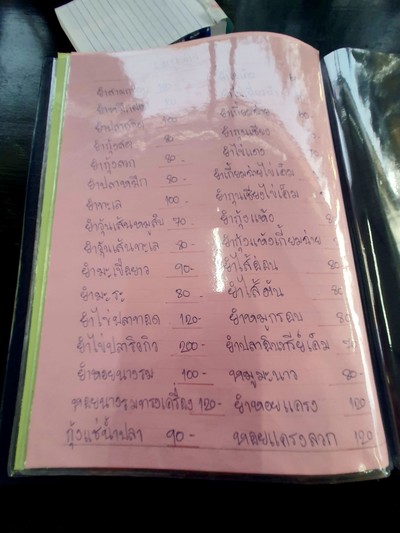 ยำสามกรอบ
ยำกุ้งสด 80
ยำกุ้งลวก 80-
ยำปลาหมึก 80-
ยำทะเล 100-
ยำวุ้นเส้นหมูสับ 70
ยำวุ้นเส้นทะเล 80-
ยำมะเขือยาว 90-
ยำมะระ 80-
ยำไข่ปลาทอด 120-
ยำไข่ปลาริวกิว 200-
ยำหอยนางรม 100-
หอยนางรมทรงเครื่อง 120-
กุ้งแช่น้ำปลา 90-
ยำเกี้ยมฉ่าย
ยำกุนเชียง
ยำไข่แดง 70
ยำเกี้ยมฉ่ายไข่เค็ม
ยำกุนเชียงไข่เค็ม
ยำกุ้งแห้ง
ยำกุ้งแห้งเกี้ยมฉ่าย
ยำไส้อ่อน
ยำไส้ตัน
ยำหมูกรอบ
ยำปลาอินทรีย์เค็ม
หมูมะนาว 80-
ยำหอยแครง 120
หอยแครงลวก 120